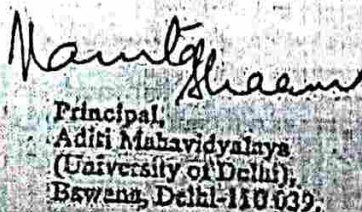 Principal,
Aditi Mahavidyalaya
(University of Delhi),
Bawana, Delhi-110 039.